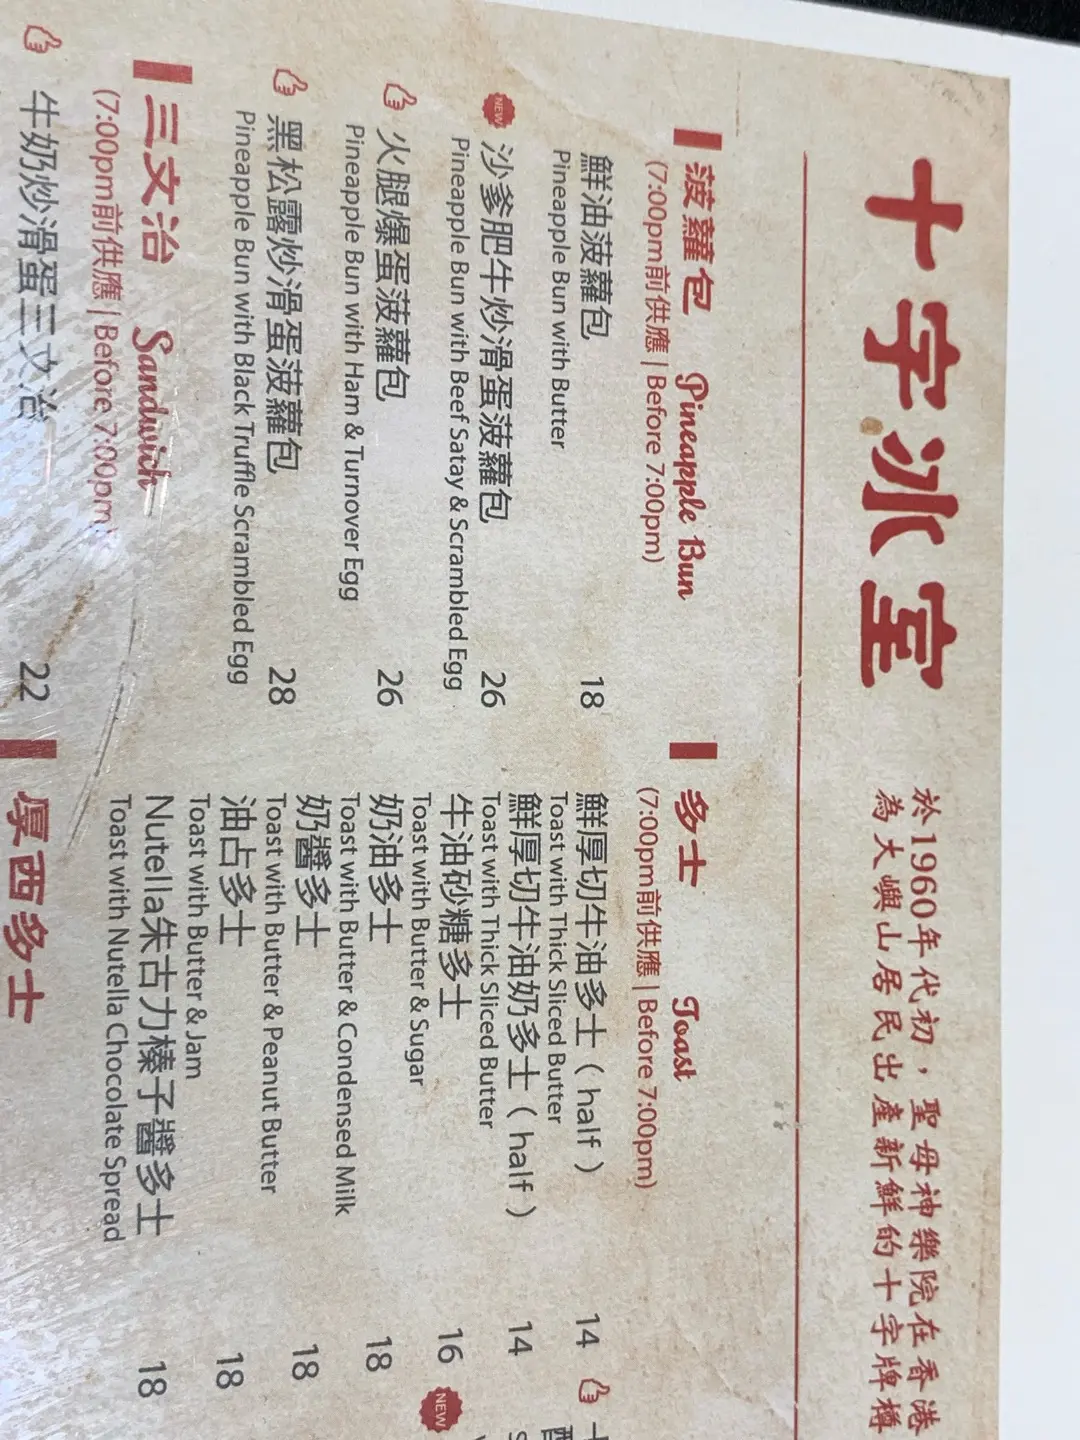 十字冰室
於1960年代初，聖母神樂院在香港
為大嶼山居民出產新鮮的十字牌樽
菠蘿包 Pineapple Bun
(7:00pm前供應 | Before 7:00pm)
鮮油菠蘿包 18
Pineapple Bun with Butter
NEW 沙爹肥牛炒滑蛋菠蘿包 26
Pineapple Bun with Beef Satay & Scrambled Egg
火腿爆蛋菠蘿包 26
Pineapple Bun with Ham & Turnover Egg
黑松露炒滑蛋菠蘿包 28
Pineapple Bun with Black Truffle Scrambled Egg
三文治 Sandwich
(7:00pm前供應 | Before 7:00pm)
牛奶炒滑蛋三文治 22
多士 Toast
(7:00pm前供應 | Before 7:00pm)
鮮厚切牛油多士（half） 14
Toast with Thick Sliced Butter
鮮厚切牛油奶多士（half） 14
Toast with Thick Sliced Butter
牛油砂糖多士 16
Toast with Butter & Sugar
奶油多士 18
Toast with Butter & Condensed Milk
奶醬多士 18
Toast with Butter & Peanut Butter
油占多士 18
Toast with Butter & Jam
Nutella朱古力榛子醬多士 18
Toast with Nutella Chocolate Spread
厚西多士
NEW